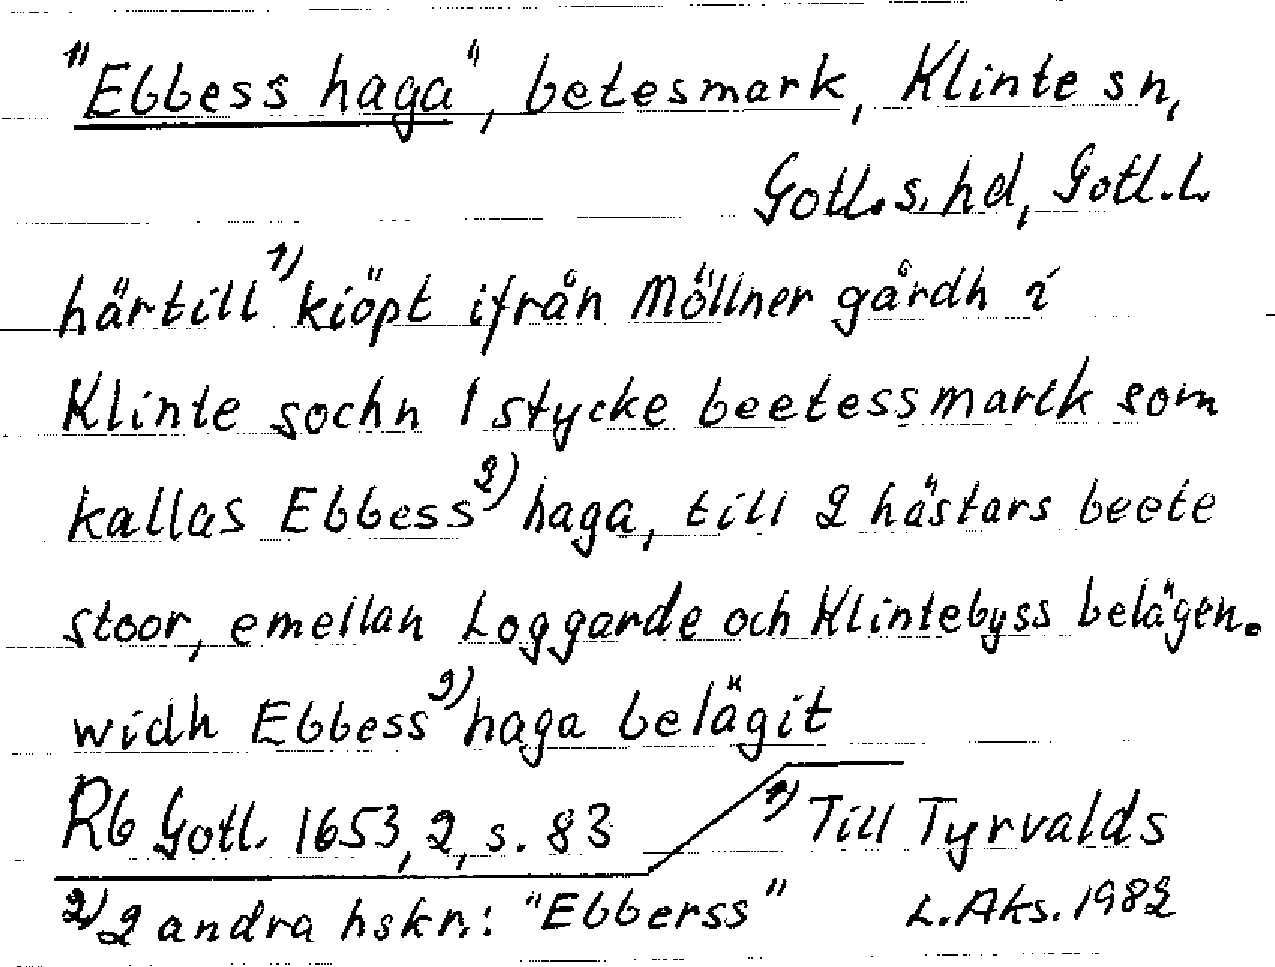 "Ebbess haga", betesmark, Klinte sn,
Gotl. s. hd, Gotl. l.
härtill 1) kiöpt ifrån Möllner gårdh i
Klinte sochn 1 stycke beetessmarck som
kallas Ebbess 2) haga, till 2 hästars beete
stoor, emellan Loggarde och Klintebyss belägen.
widh Ebbess 2) haga belägit
Rb Gotl. 1653, 2, s. 83
1) Till Tyrvalds
2) 2 andra hskr.: "Ebberss"
L. Aks. 1982